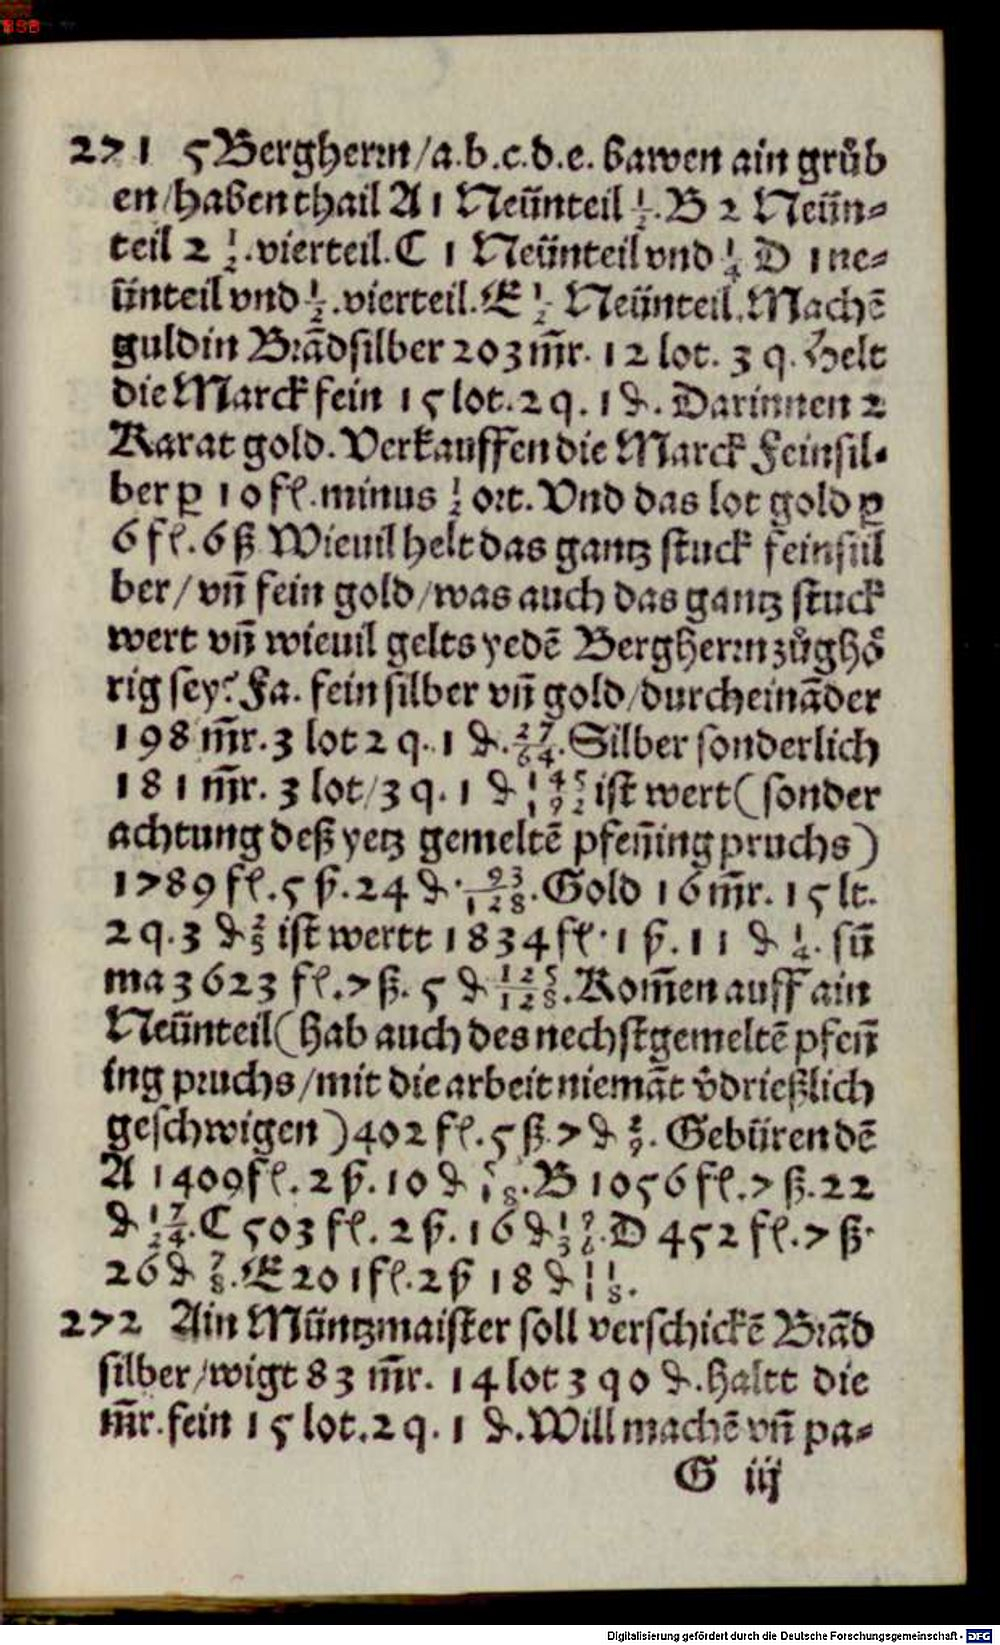 BSB
271 5 Bergherrn/a.b.c.d.e. bawen ain grůb
en/haben thail A 1 Neünteil ½. B 2 Neün⸗
teil 2 ½. vierteil. C 1 Neünteil vnd ¼ D 1 ne⸗
ünteil vnd ½. vierteil. E ½ Neünteil. Machē
guldin Brādsilber 203 m̄r. 12 lot. 3 q. Helt
die Marck fein 15 lot. 2 q. 1 ₰. Darinnen 2
Karat gold. Verkauffen die Marck Feinsil⸗
ber ꝑ 10 fl. minus ½ ort. Vnd das lot gold ꝑ
6 fl. 6 ß Wieuil helt das gantz stuck feinsil
ber/ vn̄ fein gold/was auch das gantz stuck
wert vn̄ wieuil gelts yedē Bergherrn zůghö
rig sey? Fa. fein silber vn̄ gold/durcheināder
198 m̄r. 3 lot 2 q. 1 ₰. 27/64. Silber sonderlich
181 m̄r. 3 lot/3 q. 1 ₰ 145/192 ist wert (sonder
achtung deß yetz gemeltē pfen̄ing pruchs)
1789 fl. 5 ß. 24 ₰. 93/128. Gold 16 m̄r. 15 lt.
2 q. 3 ₰ ⅖ ist wertt 1834 fl. 1 ß. 11 ₰ ¼. sū
ma 3623 fl. 7 ß. 5 ₰ 125/128. Kom̄en auff ain
Neünteil (hab auch des nechstgemeltē pfen̄
ing pruchs/mit die arbeit niemāt v̄drießlich
geschwigen) 402 fl. 5 ß. 7 ₰ 2/9. Gebüren dē
A 1409 fl. 2 ß. 10 ₰ 5/18. B 1056 fl. 7 ß. 22
₰ 17/24. C 503 fl. 2 ß. 16 ₰ 19/36. D 452 fl. 7 ß.
26 ₰ ⅞. E 201 fl. 2 ß 18 ₰ 11/18.
272 Ain Müntzmaister soll verschickē Brād
silber/wigt 83 m̄r. 14 lot 3 q 0 ₰. haltt die
m̄r. fein 15 lot. 2 q. 1 ₰. Will machē vn̄ pa⸗
G iij
Digitalisierung gefördert durch die Deutsche Forschungsgemeinschaft - DFG